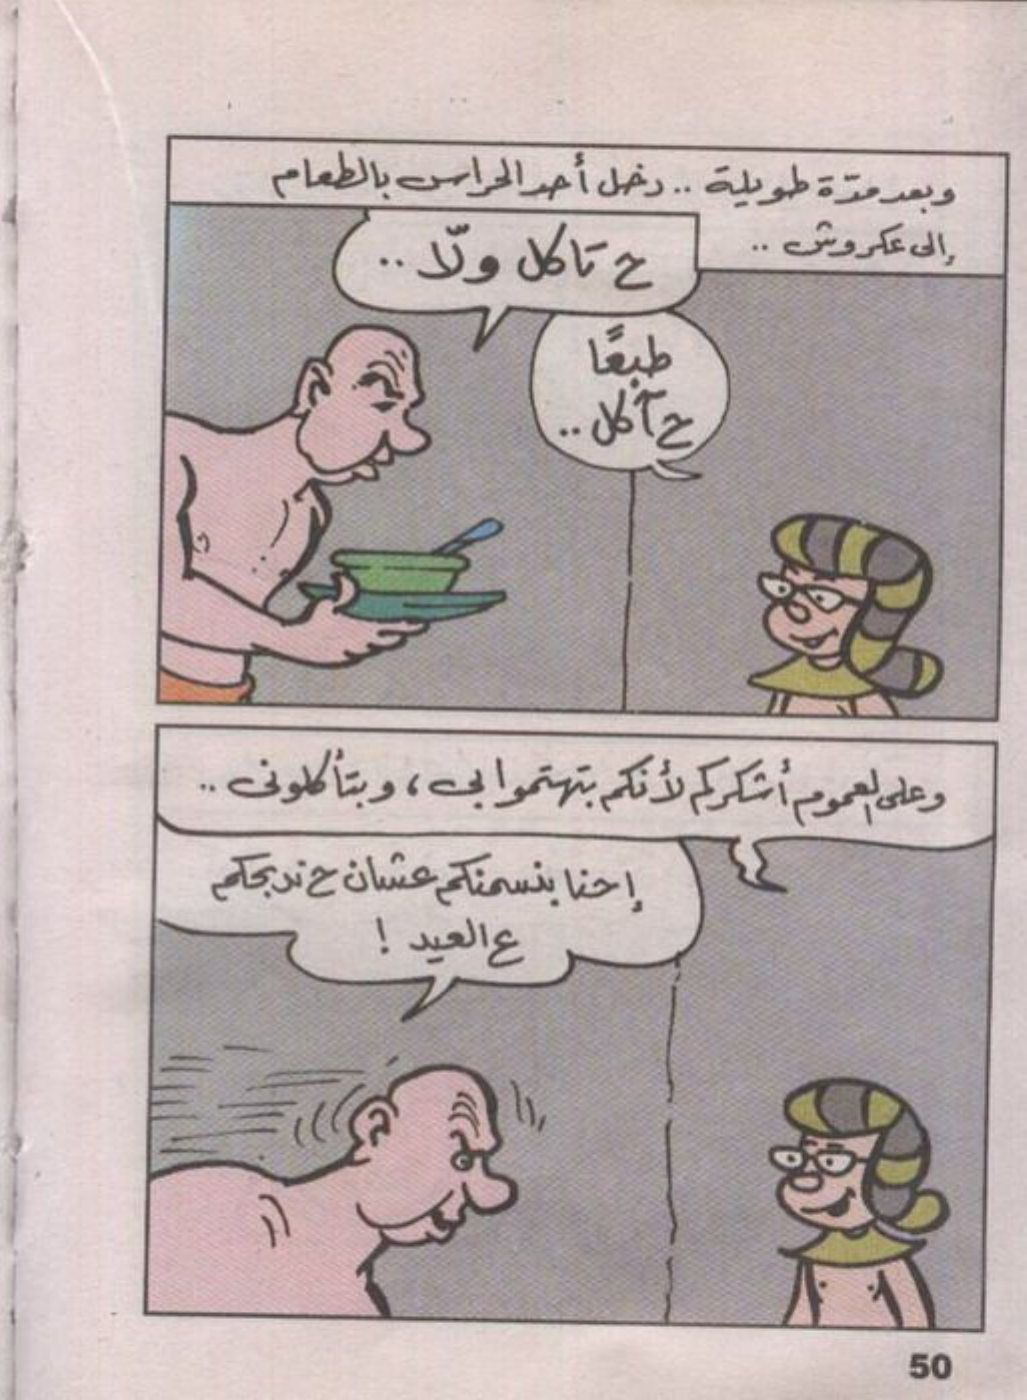 وبعد مدّة طويلة .. دخل أحد الحراس بالطعام
إلى عكروش ..
ح تاكل ولّا ..
طبعًا
ح آكل ..
وعلى العموم أشكركم لأنكم بتهتموا بى ، وبتأكلونى ..
إحنا بنسمنكم عشان ح ندبحكم
ع العيد !
50